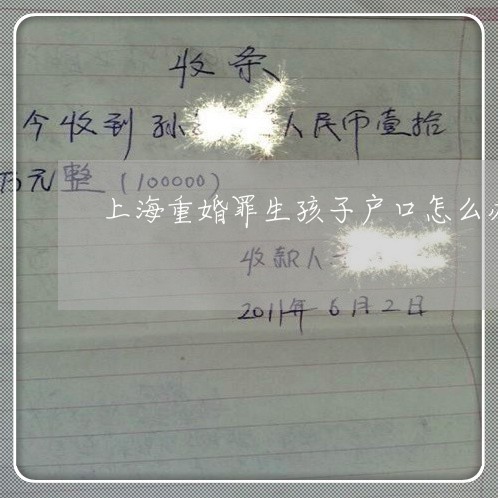 收条
今收到孙 人民币壹拾
万元整(100000)
上海重婚罪生孩子户口怎么办
收款人
2011年6月2日